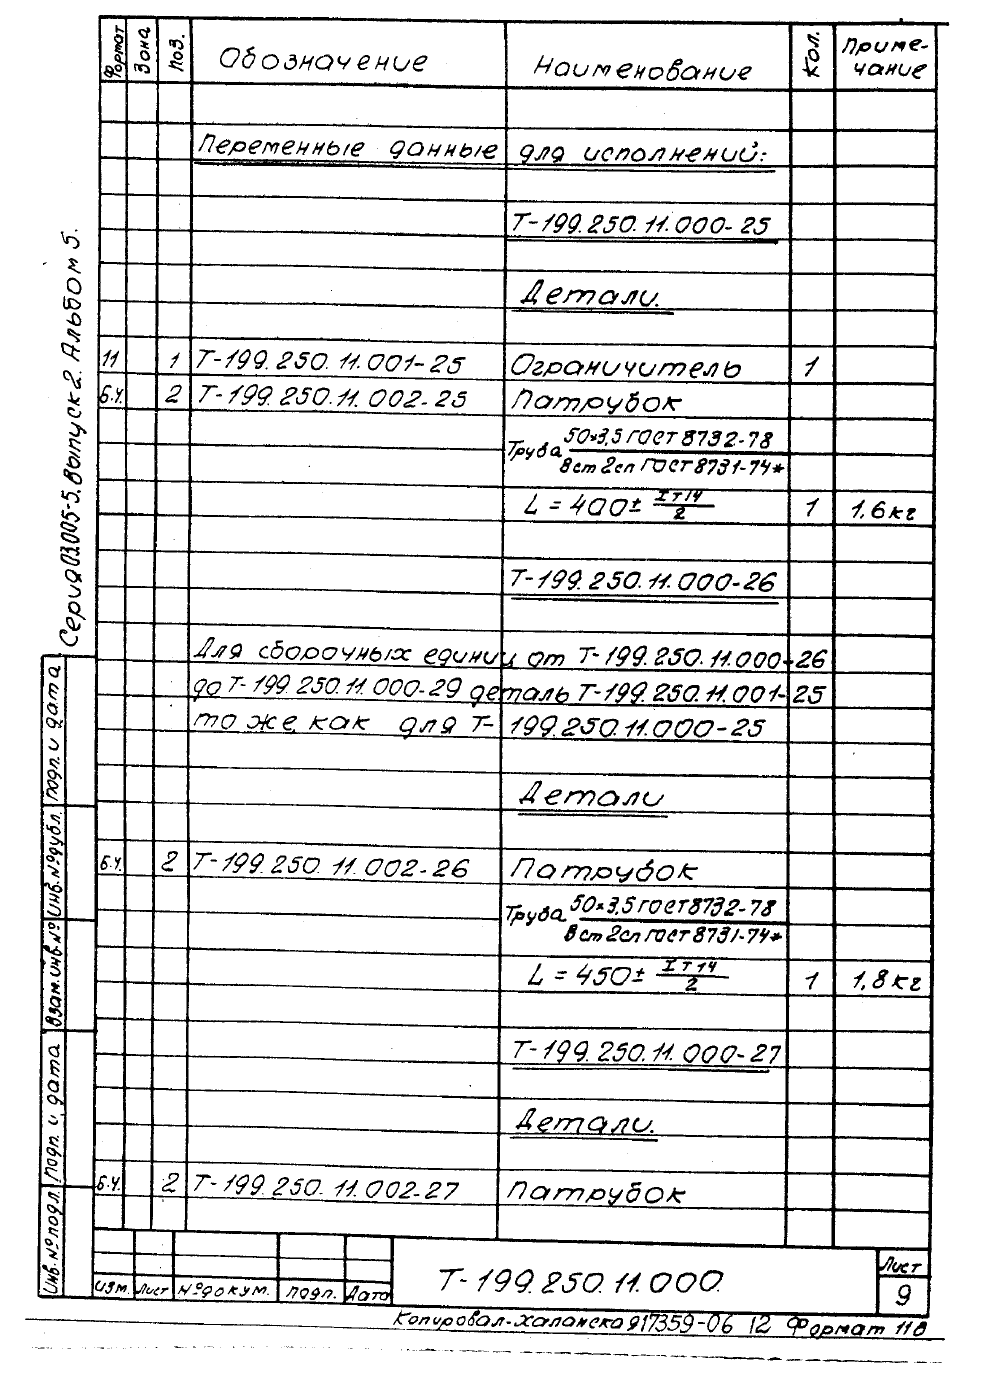 Формат Зона Поз. Обозначение Наименование Кол. Приме-
чание
Переменные данные для исполнений:
Т-199.250.11.000-25
Детали.
11 1 Т-199.250.11.001-25 Ограничитель 1
Б.Ч. 2 Т-199.250.11.002-25 Патрубок
Труба 50×3,5 ГОСТ 8732-78
В ст 2сп ГОСТ 8731-74*
L = 400± IT14/2 1 1,6кг
Т-199.250.11.000-26
Для сборочных единиц от Т-199.250.11.000-26
до Т-199.250.11.000-29 деталь Т-199.250.11.001-25
то же, как для Т-199.250.11.000-25
Детали
Б.Ч. 2 Т-199.250.11.002-26 Патрубок
Труба 50×3,5 ГОСТ 8732-78
В ст 2сп ГОСТ 8731-74*
L = 450± IT14/2 1 1,8кг
Т-199.250.11.000-27
Детали.
Б.Ч. 2 Т-199.250.11.002-27 Патрубок
Серия 03.005-5. Выпуск 2. Альбом 5.
Инв.№ подл. Подп. и дата Взам.инв.№ Инв.№ дубл. Подп. и дата
Изм. Лист №докум. Подп. Дата
Т-199.250.11.000.
Лист
9
Копировал- 17359-06 12 Формат 11В